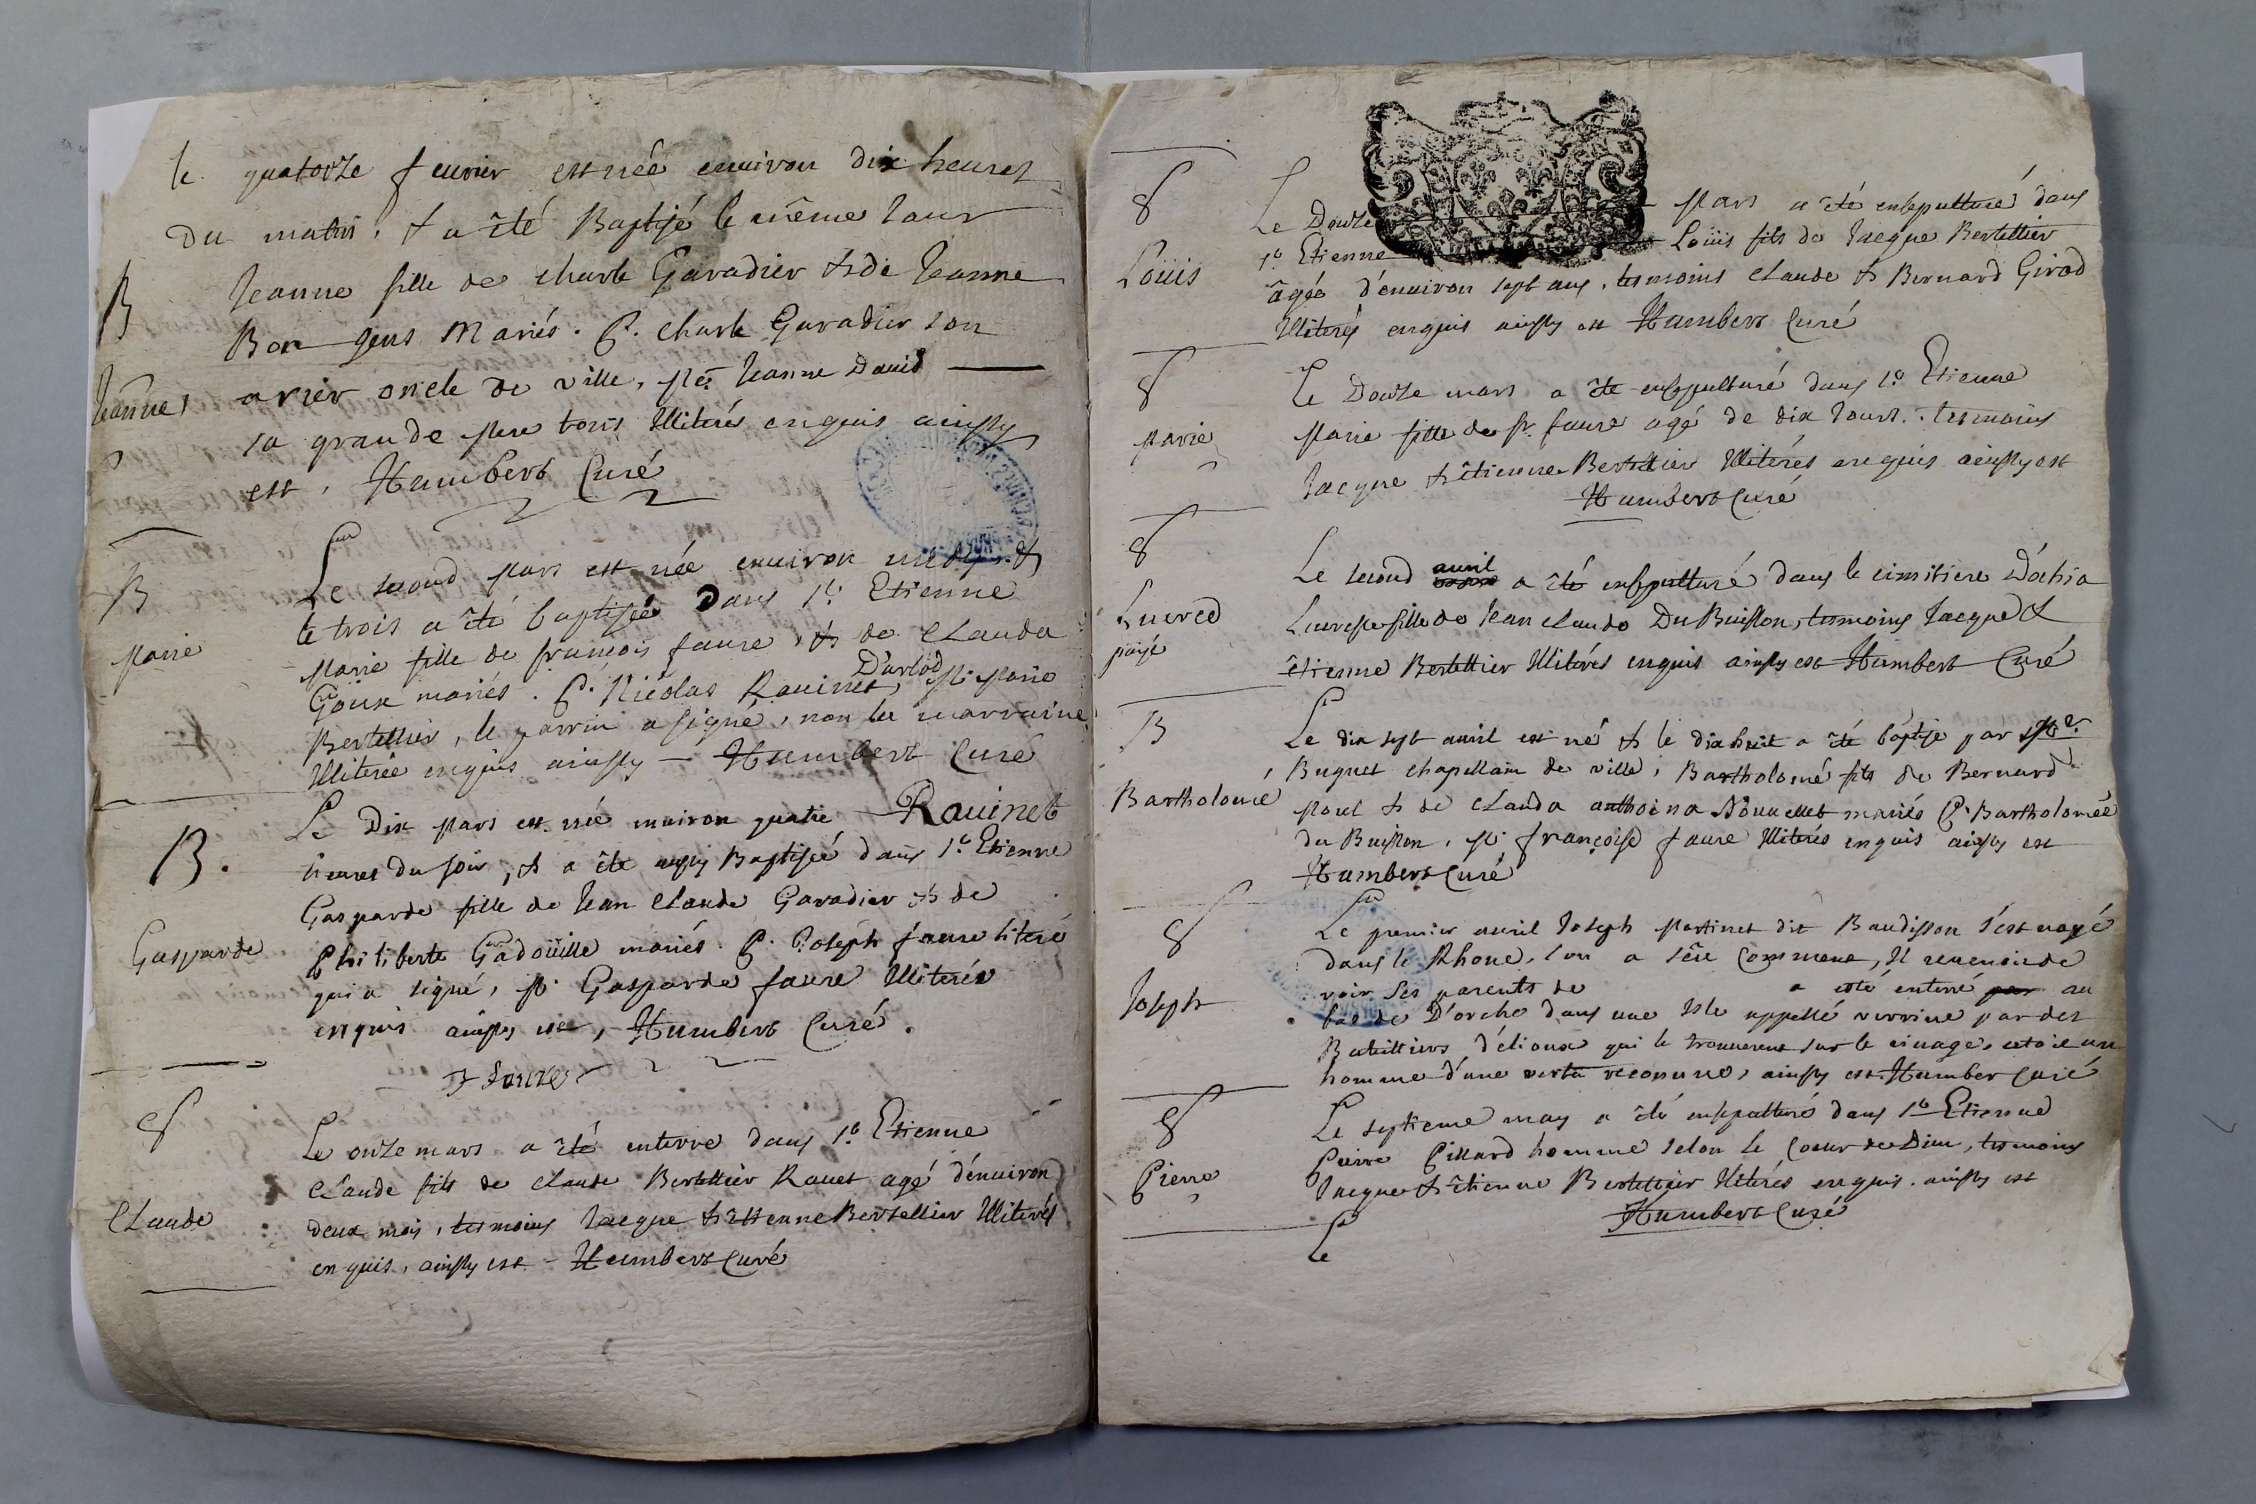 le quatorze feurier est née enuiron dix heures
du matin, & a été Baptisé le même Jour
B Jeanne fille de charle Garadier & de Jeanne
Bon gens Mariés. P. charle Garadier son
Jeanne arier oncle de ville, Me: Jeanne Dauid
sa grande Mere tous Illiterés enquis ainsy
est, Humbert Curé
Le second Mars est née enuiron midy. &
B le trois a été baptisée Dans St. Etienne
Marie Marie fille de francois faure, & de Clauda
Goux mariés. P. Nicolas Rauinet, Darlod M. Marie
Bertettier, le parrin a signé, non la marraine
Illiterée enquis ainsy — Humbert Curé
Le Dix Mars est née enuiron quatre Rauinet
B. heures du soir, & a été aussy Baptisée dans St. Etienne
Gasparde fille de Jean Claude Garadier & de
Gasparde Philiberte Gadoüille mariés. P. Joseph faure literé
qui a signé, M. Gasparde faure Illiterée
enquis ainsy est, Humbert Curé.
J faure
S Le onze mars a été enterré dans St. Etienne
Claude fils de Claude Bertettier Rauet agé d'enuiron
Claude deux mois, tesmoins Jacque & Etienne Bertettier Illiterés
enquis, ainsy est - Humbert Curé
S Le Douze Mars a été ensepulturé dans
St. Etienne Loüis fils de Jacque Bertettier
Loüis âgée d'enuiron sept ans, tesmoins Claude & Bernard Girod
Illiterés enquis ainsy est Humbert Curé
S Le Douze mars a été ensepulturé dans St. Etienne
Marie Marie fille de fr. faure agé de dix Jours. tesmoins
Jacque & étienne Bertettier Illiterés enquis ainsy est
Humbert Curé
S Le second auril a été ensepulturé dans le cimitiere D'ahia
Lucrece Lucresse fille de Jean Claude Du Buisson, tesmoins Jacque &
étienne Bertettier Illiterés enquis ainsy est Humbert Curé
B Le dix sept auril est né & le dix huit a été baptisé par Mr.
Buquet chapellain de ville, Bartholomé fils de Bernard
Bartholomé & de Clauda anthoina mariés P. Bartholomée
du Buisson, M. françoise faure Illiterés enquis ainsy est
Humbert Curé
S Le premier auril Joseph Martinet dit Baudisson s'est nayé
dans le Rhone, l'on a Comment, Il reuenoit de
voir ses parents de a esté enterré par au
Joseph bas de D'orche dans une Isle appellé verrine par des
qui le trouuerent sur le riuage. cetoit un
homme d'une vertu reconnue, ainsy est. Humber Curé
S Le septieme may a été ensepulturé dans St Etienne
Pierre Pillard homme selon le Coeur de Dieu, tesmoins
Pierre Jacque & étienne Bertettier Illiterés enquis. ainsy est
Humbert Curé
Le